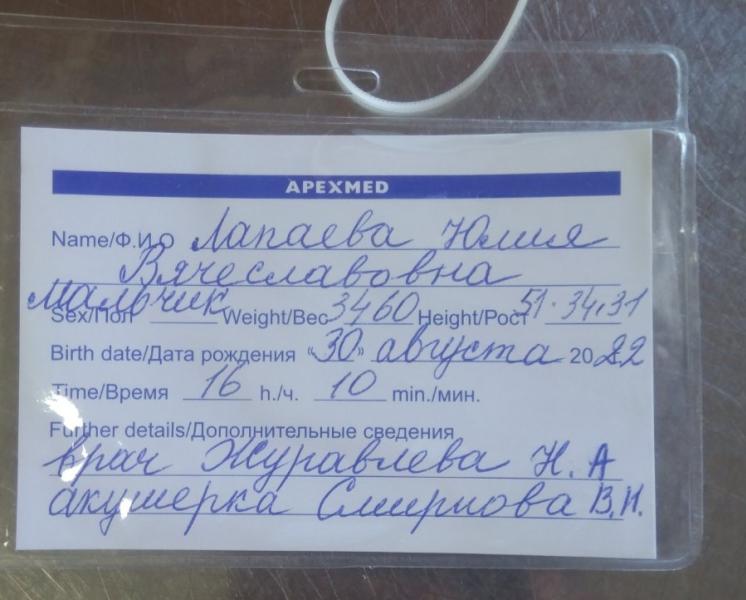 APEXMED
Name/Ф.И.О Лапаева Юлия
Вячеславовна
Sex/Пол мальчик Weight/Вес 3460 Height/Рост 51·34,31
Birth date/Дата рождения «30» августа 2022
Time/Время 16 h./ч. 10 min./мин.
Further details/Дополнительные сведения
врач Журавлева Н. А
акушерка Смирнова В.И.